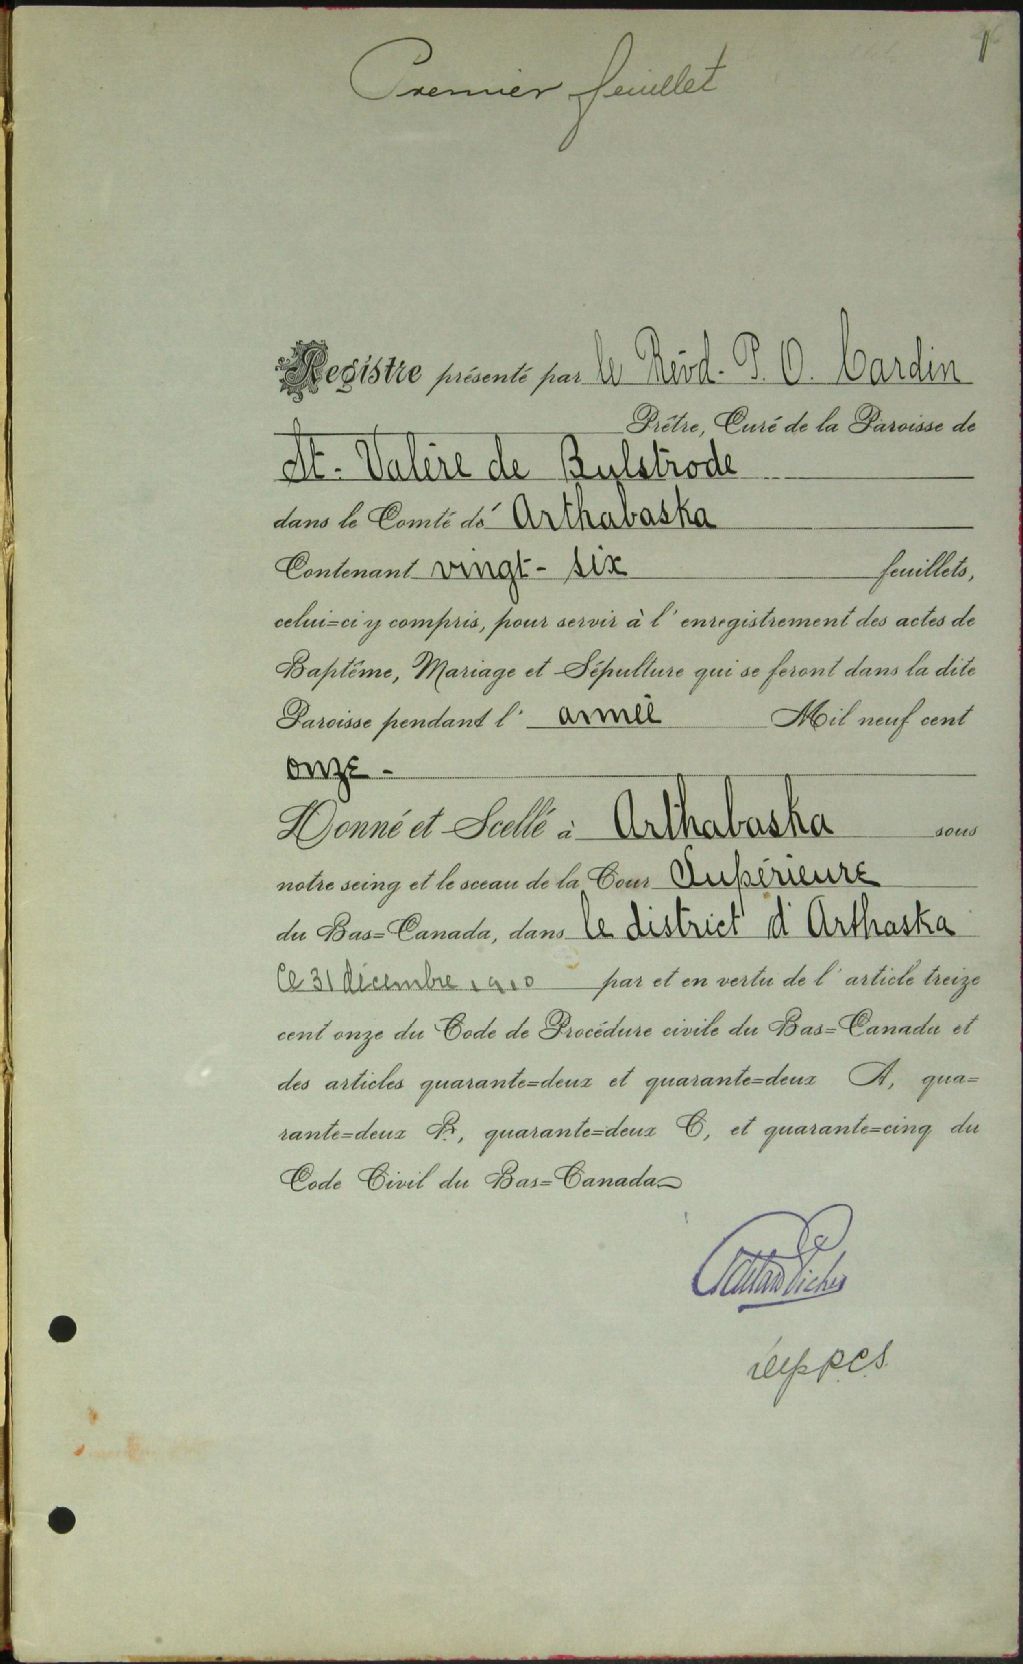 1
Premier feuillet
Registre présenté par le Révd. P. O. Cardin
Prêtre, Curé de la Paroisse de
St-Valère de Bulstrode
dans le Comté de Arthabaska
Contenant vingt-six feuillets,
celui=ci y compris, pour servir à l'enregistrement des actes de
Baptême, Mariage et Sépulture qui se feront dans la dite
Paroisse pendant l'année Mil neuf cent
onze-
Donné et Scellé à Arthabaska sous
notre seing et le sceau de la Cour Supérieure
du Bas=Canada, dans le district d'Arthaska
Ce 31 décembre 1910 par et en vertu de l'article treize
cent onze du Code de Procédure civile du Bas=Canada et
des articles quarante=deux et quarante=deux A, qua=
rante=deux B, quarante=deux C, et quarante=cinq du
Code Civil du Bas=Canada